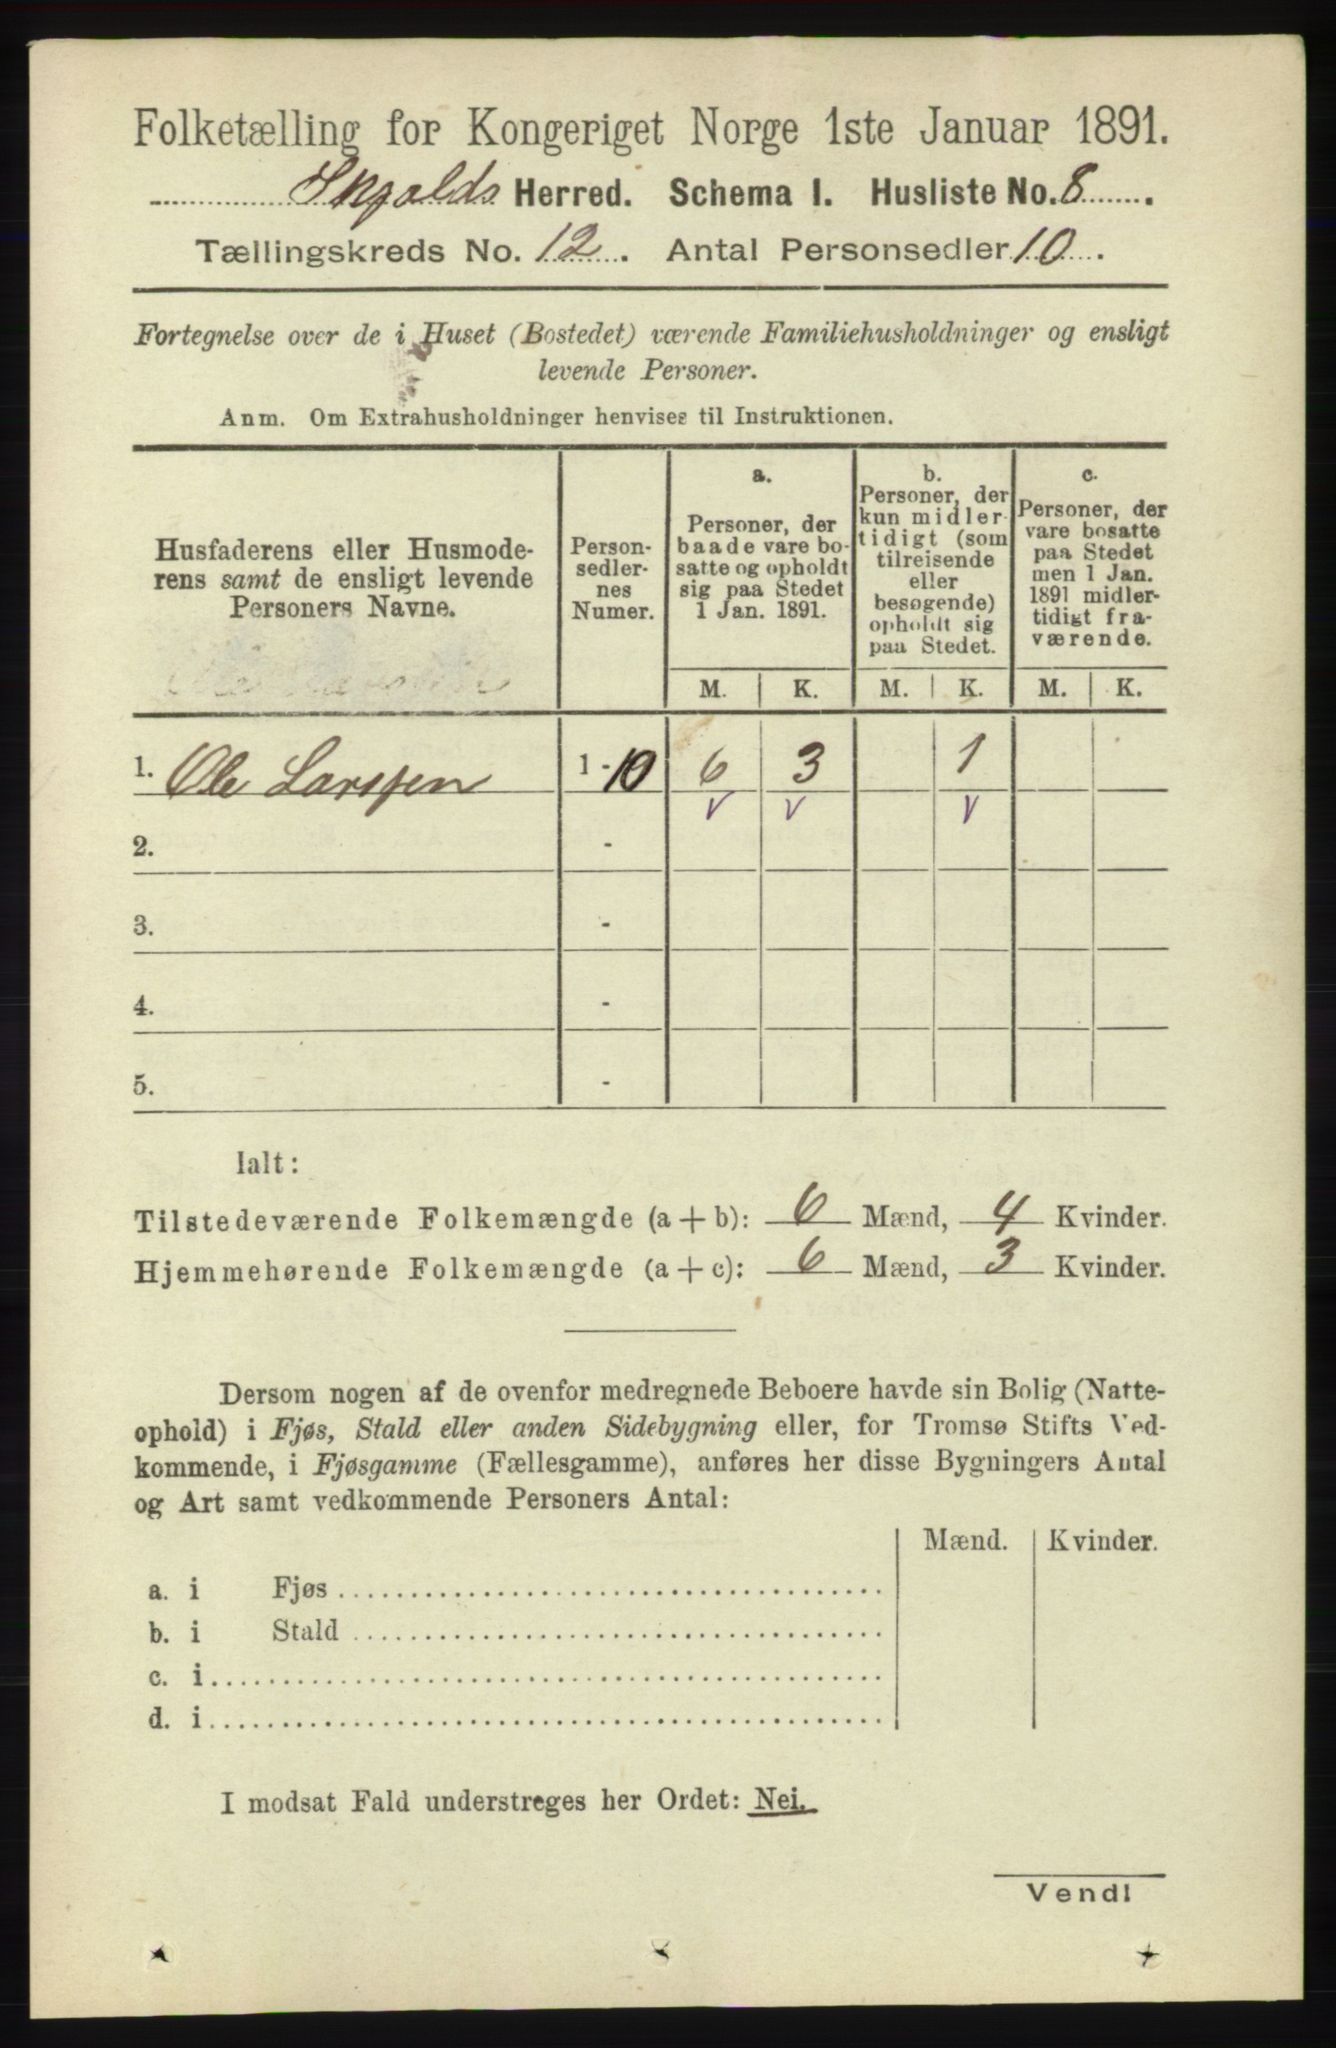 Folketælling for Kongeriget Norge 1ste Januar 1891.
Skjolds Herred. Schema I. Husliste No. 8
Tællingskreds No. 12. Antal Personsedler 10.
Fortegnelse over de i Huset (Bostedet) værende Familiehusholdninger og ensligt
levende Personer.
Anm. Om Extrahusholdninger henvises til Instruktionen.
Husfaderens eller Husmode-
rens samt de ensligt levende
Personers Navne.
Person-
sedler-
nes
Numer.
a.
Personer, der
baade vare bo-
satte og opholdt
sig paa Stedet
1 Jan. 1891.
b.
Personer, der
kun midler-
tidigt (som
tilreisende
eller
besøgende)
opholdt sig
paa Stedet.
c.
Personer, der
vare bosatte
paa Stedet
men 1 Jan.
1891 midler-
tidigt fra-
værende.
M. K. M. K. M. K.
1. Ole Larssen 1-10 6 3 1
2. -
3. -
4. -
5. -
Ialt:
Tilstedeværende Folkemængde (a + b): 6 Mænd, 4 Kvinder.
Hjemmehørende Folkemængde (a + c): 6 Mænd, 3 Kvinder.
Dersom nogen af de ovenfor medregnede Beboere havde sin Bolig (Natte-
ophold) i Fjøs, Stald eller anden Sidebygning eller, for Tromsø Stifts Ved-
kommende, i Fjøsgamme (Fællesgamme), anføres her disse Bygningers Antal
og Art samt vedkommende Personers Antal:
Mænd. Kvinder.
a. i Fjøs
b. i Stald
c. i
d. i
I modsat Fald understreges her Ordet: Nei.
Vend!